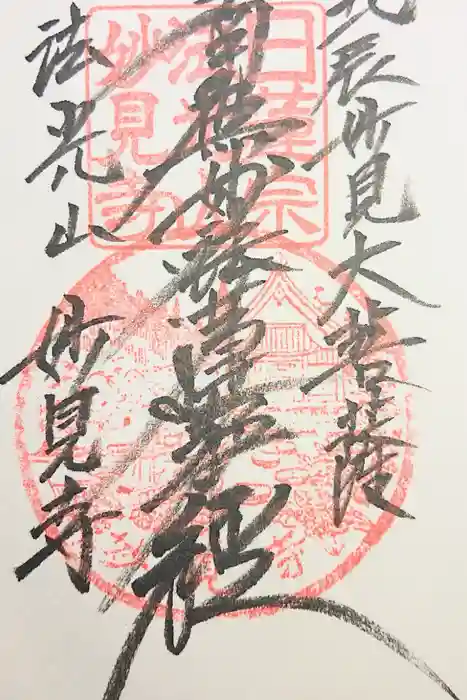 北辰妙見大菩薩
南無妙法蓮華経
法光山
妙見寺
日蓮宗
法光山
妙見寺